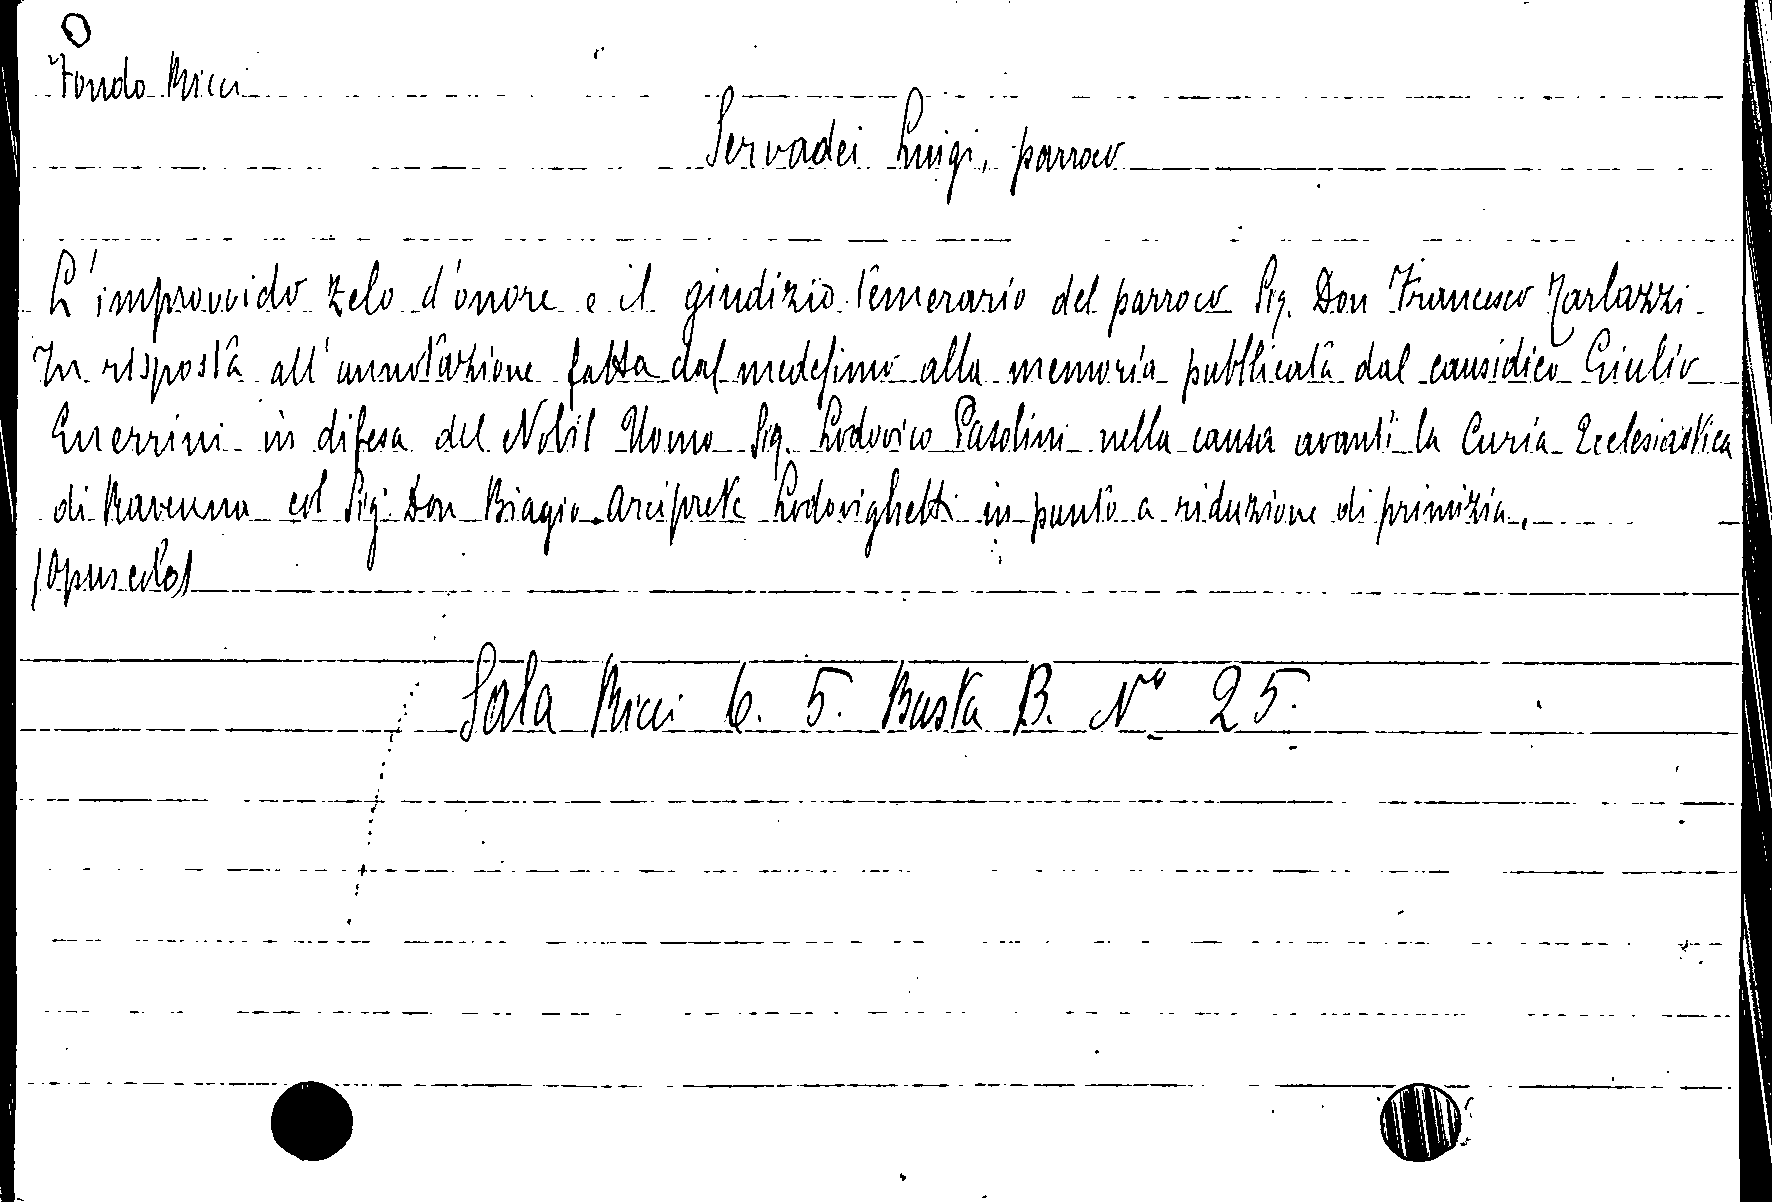 Fondo Ricci
Servadei Luigi, parroco
L'improvvido zelo d'onore e il giudizio temerario del parroco Sig. Don Francesco Tarlazzi.
In risposta all'annotazione fatta dal medesimo alla memoria pubblicata dal causidico Giulio
Guerrini in difesa del Nobil Uomo Sig. Lodovico Pasolini nella causa avanti la Curia Ecclesiastica
di Ravenna col Sig. Don Biagio Arciprete Lodovighetti in punto a riduzione di primizia.
(Opuscolo)
Sala Ricci 6. 5. Busta B. Nº 25.